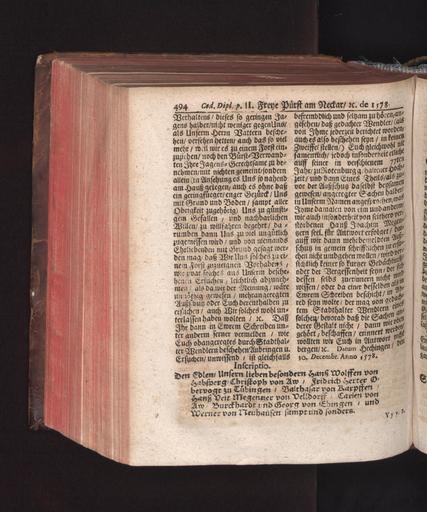 494 Cod. Dipl. p. II. Freye Pürst am Neckar/ ꝛc. de 1578.
Verhaltens/ dieses so geringen Ja-
gens halber/nicht weniger gegen Uns/
als Unserm Herrn Vattern besche-
hen/ versehen hetten/ auch daß so viel
mehr/ weil wir es zu einem Forst ein-
zuziehen/ noch den Bürst-Verwand-
ten Ihre Jagens-Gerechtsame zu be-
nehmen/mit nichten gemeint/sondern
allein/in Ansehung es Uns so nahend
am Hauß gelegen/ auch es ohne daß
ein geringfüeger/enger Gezürck/ Uns
mit Grund und Boden/ sampt aller
Obrigkeit zugehörig/ Uns zu günsti-
gem Gefallen/ und nachbarlichen
Willen/ zu willfahren begehrt/ da-
rumben dann Uns zu viel ungütlich
zugemessen wird/ und von niemands
Ehrliebenden mit Grund gesagt wer-
den mag/ daß Wir Uns solches zu ei-
nem Forst zuzueignen Vorhabens/
Ersuchen/ leichtlich abzuneh-
men/ als da wir der Meinung/ wäre
unnöthig gewesen/ mehrangeregten
Außschuß oder Euch derenthalben zu
ersuchen/ auch Wir solches wohl un-
terlassen haben wolten/ ꝛc. Daß
Ihr dann in Ewrem Schreiben un-
ter anderm ferner vermelden/ wie
Euch obangeregtes durch Stadthal-
ter Wendlern beschehen Anbringen u.
Ersuchen/ unwissend/ ist gleichfalls
befremblich und seltzam zu hören/an-
gesehen/ daß gedachter Wendler/ als
von Ihme jederzeit berichtet worden/
auch es also beschehen seyn/ in keinen
Zweiffel stellen/) Euch gleichwohl nit
samentlich/ jedoch insonderheit etliche
auff seiner in verschienenem 77ten
Jahr/ zu Rotenburg gehaltener Hoch-
zeit/ und dann Ewers Theils/ als zu-
vor der Außschuß daselbst beysamen
gewesen/ angeregter Sachen halber
in Unserm Namen angesprochen/ was
Ihme damalen von ein und anderm/
wie auch insonderheit von seither ver-
storbenen Hanß Joachim
gern seel. für Antwort erfolgt/ dar-
auff wir dann mehrbemeldten Auß-
schuß in gemein schrifftlichen zu ersu-
chen nicht umbgehen wollen/ wird
seiner so kurtzer Gedächtnuß/
oder der Vergessenheit seyn/ der sich
dessen selbs zuerinnern nicht mehr
wissen/ oder da einer desselben also in
Ewrem Schreiben beschicht/ in Ab-
red seyn wolte/ der mag von gedach-
tem Stadthalter Wendlern wohl
solches/ bevorab daß die Sachen an-
derer Gestalt nicht/ dann wie vor-
gehört/ beschaffen/ erinnert werden/
wollten wir Euch in Antwort nicht
bergen/ ꝛc. Datum Hechingen/ den
10. Decembr. Anno 1578.
Inscriptio.
Den Edlen/ Unsern lieben besondern Hanß Wolffen von
Habsperg/ Christoph von Aw/ Fridrich Herter O-
bervogt zu Tübingen/ Balthasar von Karpffen/
Hanß Veit Megenzer von Velldorff/ von
Aw/ Burckhardt und Georg von Ehingen/ und
Werner von Neuhausen sampt und sonders.